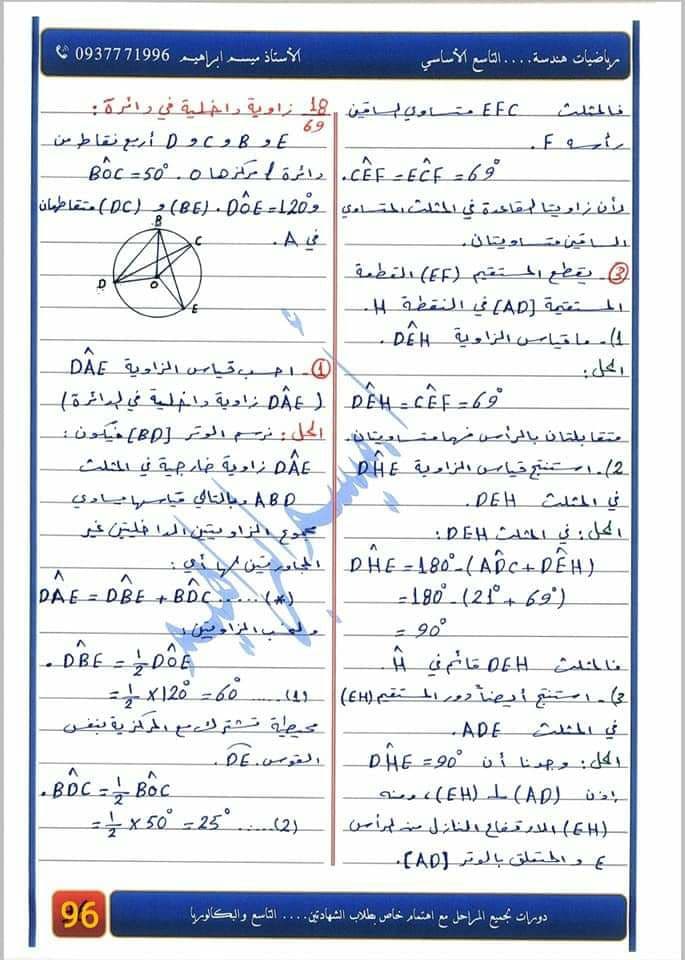 رياضيات هندسة.... التاسع الأساسي
الأستاذ ميسم ابراهيم 0937771996
فالمثلث EFC متساوي الساقين
رأسه F.
CÊF = EĈF = 69°.
لأن زاويتا القاعدة في المثلث المتساوي
الساقين متساويتان.
③. يقطع المستقيم (EF) القطعة
المستقيمة [AD] في النقطة H.
1). ما قياس الزاوية DÊH.
الحل:
DÊH = CÊF = 69°
متقابلتان بالرأس فهما متساويتان.
2). استنتج قياس الزاوية DĤE
في المثلث DEH.
الحل: في المثلث DEH:
DĤE = 180° - (AD̂C + DÊH)
= 180° - (21° + 69°)
= 90°
فالمثلث DEH قائم في Ĥ.
3). استنتج أيضاً دور المستقيم (EH)
في المثلث ADE.
الحل: وجدنا أن DĤE = 90°
إذن (AD) ⊥ (EH)، ومنه
(EH) الارتفاع النازل من الرأس
E والمتعلق بالوتر [AD].
18/69 زاوية داخلية في دائرة:
E و B و C و D أربع نقاط من
دائرة مركزها O. BÔC = 50°
و DÔE = 120°. (BE) و (DC) متقاطعان
في A.
B
C
D
O
E
①. احسب قياس الزاوية DÂE
(DÂE زاوية داخلية في الدائرة)
الحل: نرسم الوتر [BD] فيكون:
DÂE زاوية خارجية في المثلث
ABD وبالتالي قياسها يساوي
مجموع الزاويتين الداخليتين غير
المجاورتين لها أي:
DÂE = DB̂E + BD̂C ..... (*)
ولحسب الزاويتين:
DB̂E = ½ DÔE.
= ½ × 120° = 60° ..... (1)
محيطية تشترك مع المركزية بنفس
القوس DE.
BD̂C = ½ BÔC.
= ½ × 50° = 25° ..... (2)
دورات لجميع المراحل مع اهتمام خاص بطلاب الشهادتين.... التاسع والبكالوريا
96